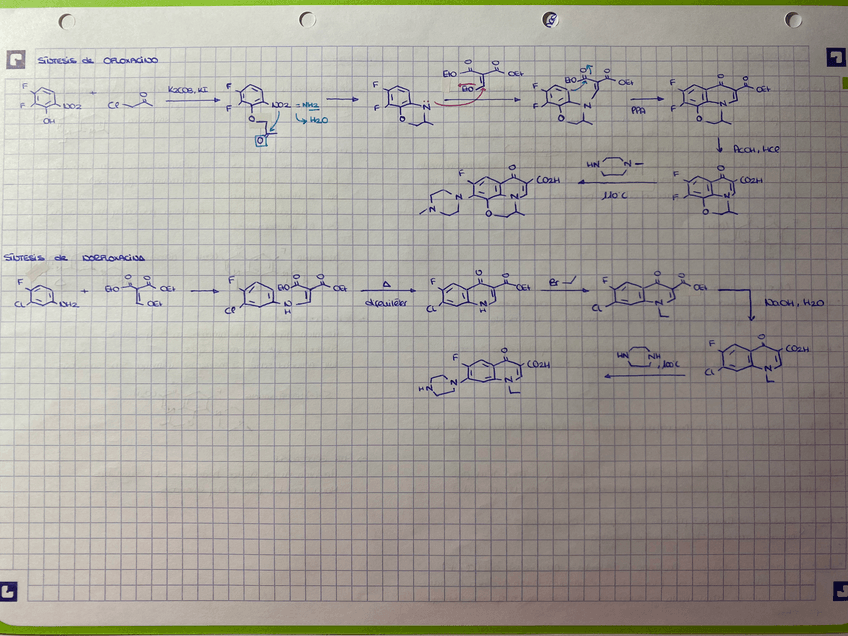 SÍNTESIS de OFLOXACINO
F F OH NO2 + Cl O K2CO3, KI F F O NO2 = NH2 O → H2O F F N O EtO O O OEt EtO F F O N EtO O O OEt PPA F F O N O O OEt
AcOH, HCl
F N N N O O CO2H HN N 110°C F F O N O CO2H
SÍNTESIS de NORFLOXACINA
F Cl NH2 + EtO O O OEt OEt F Cl N H EtO O O OEt Δ difenileter F Cl N H O O OEt Br F Cl N O O OEt NaOH, H2O
F HN N N O CO2H HN NH , 100°C F Cl N O CO2H